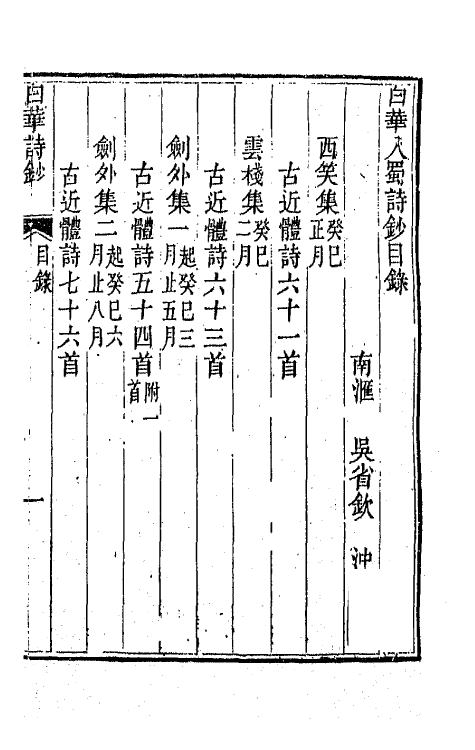 白華入蜀詩鈔目錄
南滙　吳省欽　沖
西笑集癸巳正月
古近體詩六十一首
雲棧集癸巳二月
古近體詩六十三首
劍外集一起癸巳三月止五月
古近體詩五十四首附一首
劍外集二起癸巳六月止八月
古近體詩七十六首
白華詩鈔
目錄
一